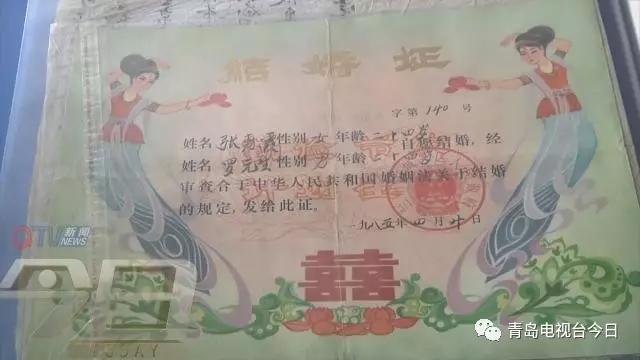 结婚证
字第 140 号
姓名 张 性别 女 年龄 二十四岁 自愿结婚，经
姓名 罗元 性别 男 年龄 二十四岁
审查合于中华人民共和国婚姻法关于结婚
的规定，发给此证。
一九八五年四月 日
囍
QTV 新闻
NEWS
今日
TODAY
青岛电视台今日